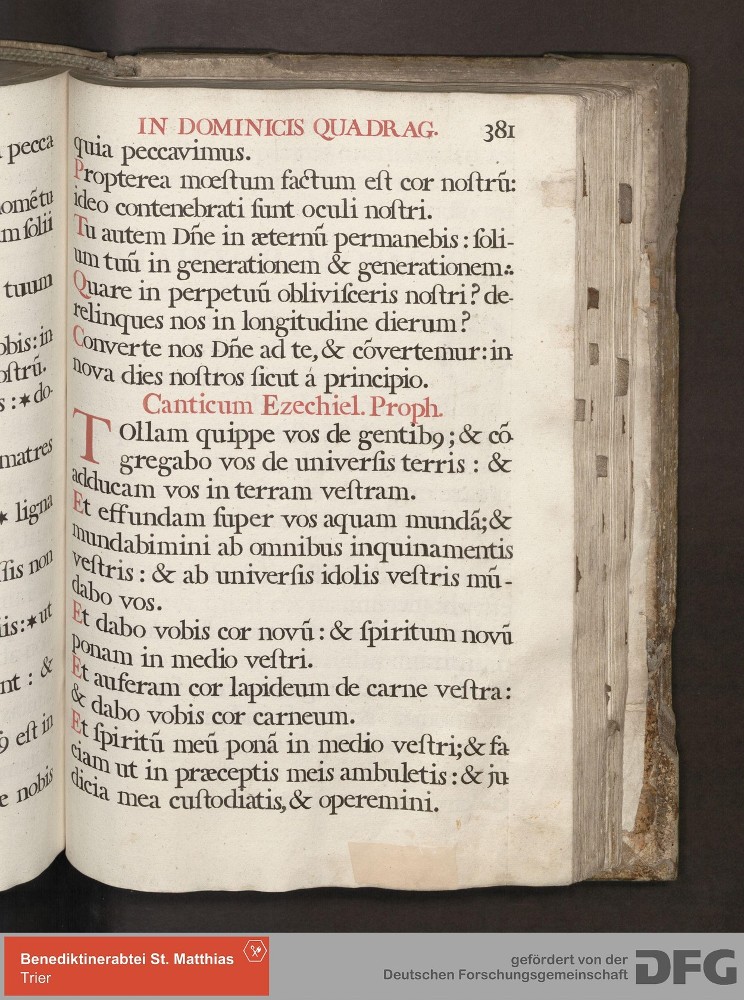 pecca
ométu
m ſolii
tuum
obis: in
oſtrũ.
s : ✶ do-
matres
✶ ligna
ſſis non
iis: ✶ ut
nt : &
9 eſt in
e nobis
IN DOMINICIS QUADRAG. 381
quia peccavimus.
Propterea mœſtum factum eſt cor noſtrũ:
ideo contenebrati ſunt oculi noſtri.
Tu autem Dñe in æternũ permanebis : ſoli-
um tuũ in generationem & generationem.
Quare in perpetuũ obliviſceris noſtri? de-
relinques nos in longitudine dierum?
Converte nos Dñe ad te, & cõvertemur: in
nova dies noſtros ſicut á principio.
Canticum Ezechiel. Proph.
TOllam quippe vos de gentib9; & cõ-
gregabo vos de univerſis terris : &
adducam vos in terram veſtram.
Et effundam ſuper vos aquam mundã; &
mundabimini ab omnibus inquinamentis
veſtris : & ab univerſis idolis veſtris mũ-
dabo vos.
Et dabo vobis cor novũ : & ſpiritum novũ
ponam in medio veſtri.
Et auferam cor lapideum de carne veſtra:
& dabo vobis cor carneum.
Et ſpiritũ meũ ponã in medio veſtri; & fa
ciam ut in præceptis meis ambuletis : & ju
dicia mea cuſtodiatis, & operemini.
Benediktinerabtei St. Matthias
Trier
gefördert von der
Deutschen Forschungsgemeinschaft DFG